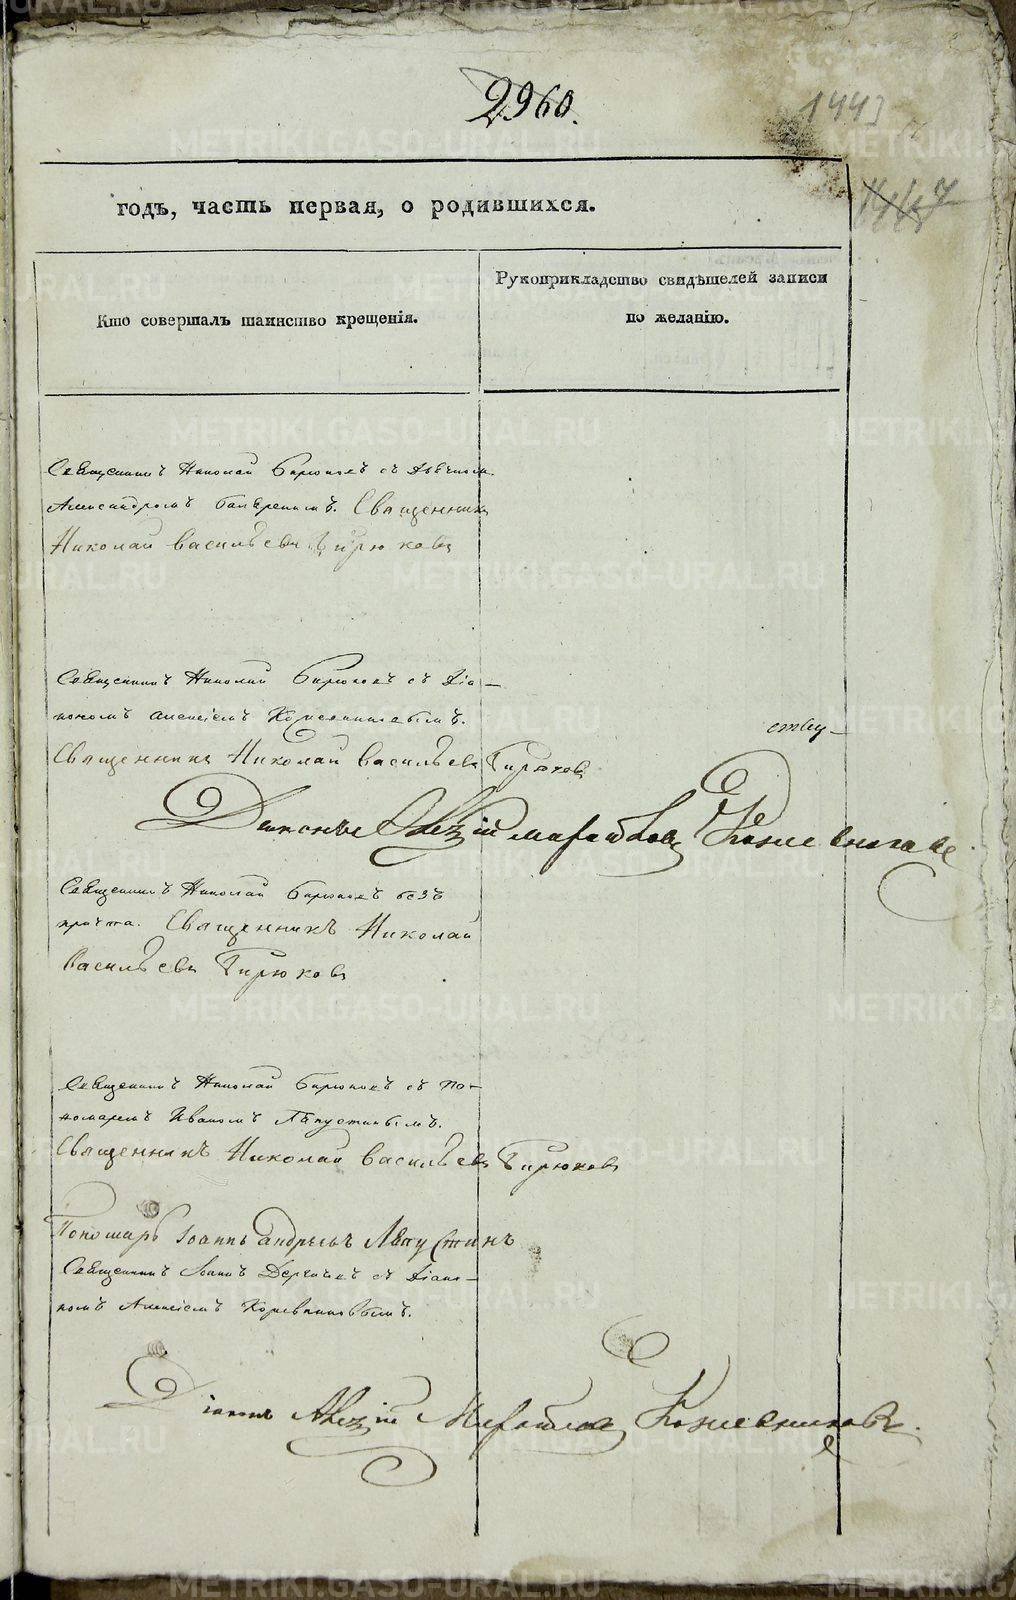 2960.
1443
годъ, часть первая, о родившихся.
Кто совершалъ таинство крещенія.
Рукоприкладство свидѣтелей записи
по желанію.
Священникъ Николай Бирюковъ съ
Александромъ Священникъ
Николай Васильевъ Бирюковъ
Священникъ Николай Бирюковъ съ Діа-
кономъ Алексіемъ Кожевниковымъ.
Священникъ Николай Васильевъ Бирюковъ
Діаконъ Алексій Михайловъ Кожевниковъ
Священникъ Николай Бирюковъ безъ
причта. Священникъ Николай
Васильевъ Бирюковъ
Священникъ Николай Бирюковъ съ По-
номаремъ Иваномъ Лапустинымъ.
Священникъ Николай Васильевъ Бирюковъ
Пономарь Іоаннъ Андреевъ Лапустинъ
Священникъ Іоаннъ съ Діако-
номъ Алексіемъ Кожевниковымъ.
Діаконъ Алексій Михайловъ Кожевниковъ.
METRIKI.GASO-URAL.RU